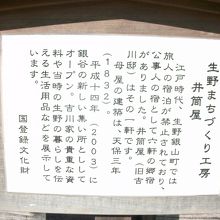 生野まちづくり工房
井筒屋
江戸時代、生野銀山町では
旅人の宿泊が禁止されており、
公事人の宿として六軒の郷宿
がありました。井筒屋(旧吉
川邸)はその一軒です。
母屋の建築は、天保三年
(1832)。
平成十四年(2003)に
銀谷の新しい集い所として
オープン。吉川家の貴重な資
料や当時の生野の暮らしを伝
える生活用品などを展示して
います。
国登録文化財